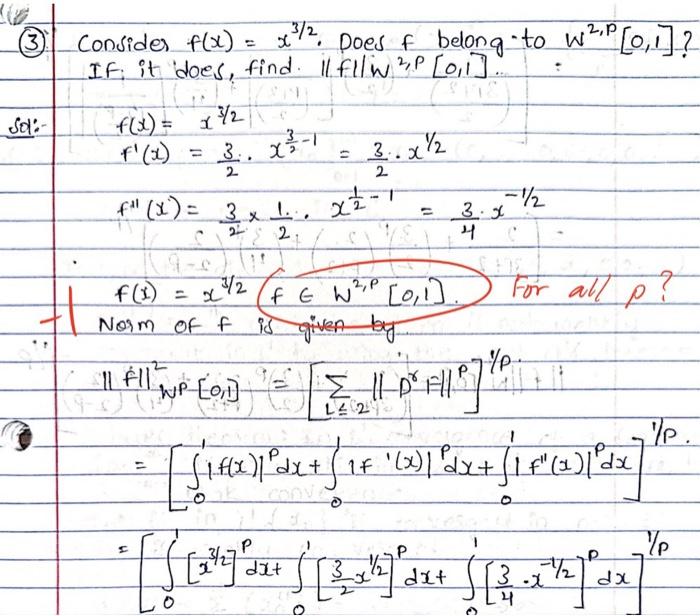 ③ Consider f(x) = x^{3/2}. Does f belong to W^{2,P}[0,1]?
If it does, find ||f||W^{2,P}[0,1].
Sol:- f(x) = x^{3/2}
f'(x) = 3/2 . x^{3/2 - 1} = 3/2 . x^{1/2}
f''(x) = 3/2 × 1/2 . x^{1/2 - 1} = 3/4 . x^{-1/2}
-1 f(x) = x^{3/2} f ∈ W^{2,P}[0,1]. For all p?
Norm of f is given by
||f||^2_{WP}[0,1] = [∑_{L≤2} ||D^γ f||^P]^{1/P}.
= [∫_0^1 |f(x)|^P dx + ∫_0^1 |f'(x)|^P dx + ∫_0^1 |f''(x)|^P dx]^{1/P}.
= [∫_0^1 [x^{3/2}]^P dx + ∫_0^1 [3/2 x^{1/2}]^P dx + ∫_0^1 [3/4 . x^{-1/2}]^P dx]^{1/P}